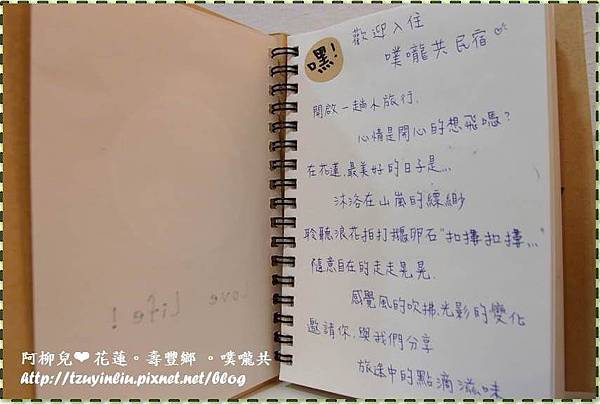 嘿!
歡迎入住
噗嚨共民宿
開啟一趟小旅行,
心情是開心的想飛嗎?
在花蓮,最美好的日子是...
沐浴在山嵐的縹緲
聆聽浪花拍打鵝卵石"扣摟扣摟..."
隨意自在的走走晃晃.
感覺風的吹拂,光影的變化
邀請你,與我們分享
旅途中的點滴滋味
Love Life!
阿柳兒❤花蓮。壽豐鄉 。噗嚨共
http://tzuyinliu.pixnet.net/blog